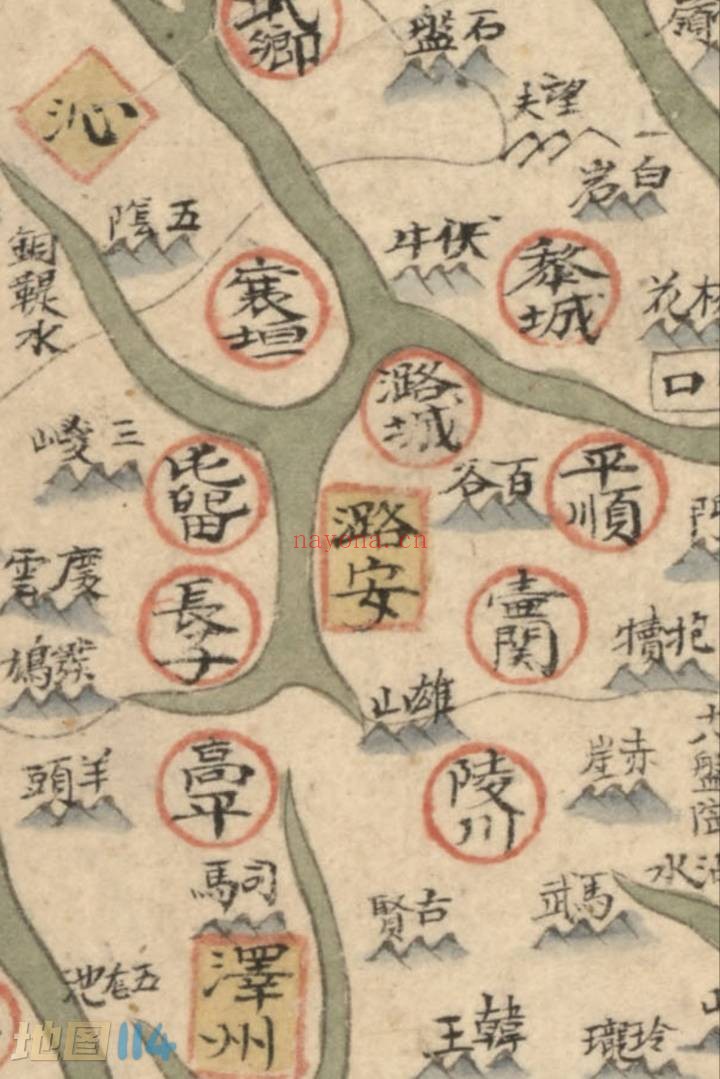 武鄉
石盤
嶺
沁
望夫
一
白岩
五陰
銅鞮水
伏牛
襄垣
黎城
花
口
潞城
三嵕
屯留
百谷
平順
潞安
慶雲
長子
壺関
發鳩
抱犢
雄山
羊頭
高平
陵川
赤崖
六盤
司馬
古賢
馬武
水
澤州
池
韓王
玲瓏
山
nayona.cn
地图114